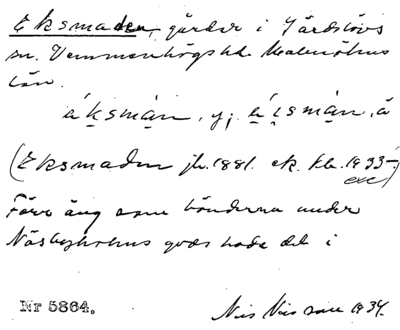 Eksmaden, gårdar i Gärdslövs
sn. Vemmenhögs hd. Malmöhus
län.
(Eksmaden jb. 1881. ek. kb. 1935.
exc)
Förr äng som bönderna under
Näsbyholms gods hade del i
Nr 5864. Nils Nilsson 1934.